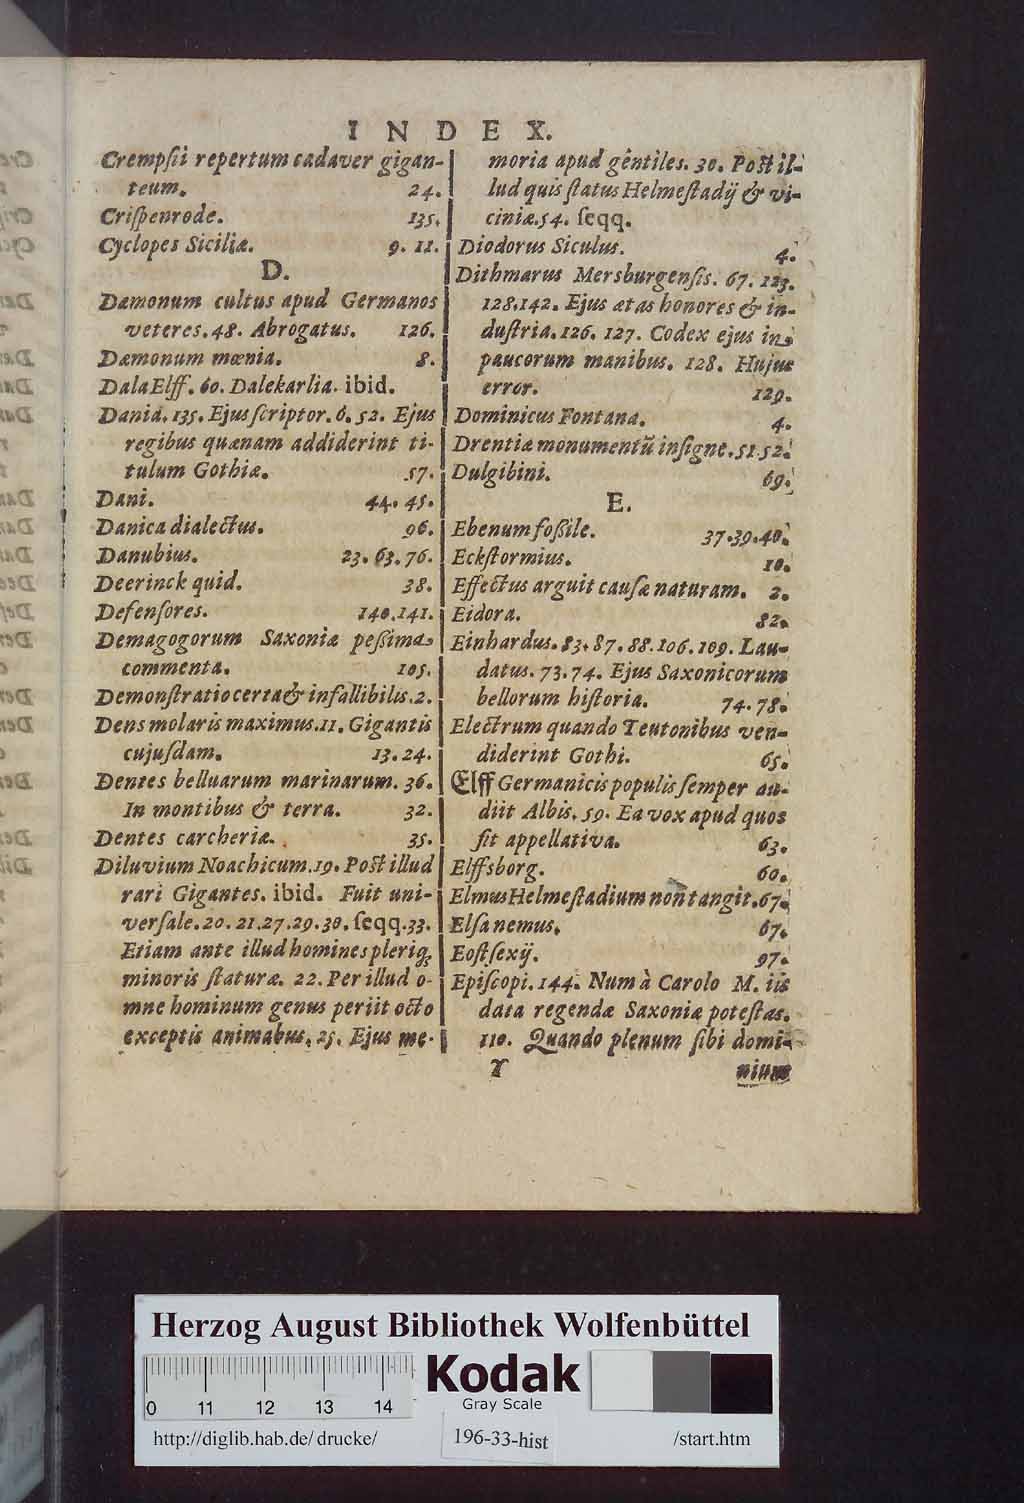 INDEX.
Crempſii repertum cadaver gigan-
teum. 24.
Criſpenrode. 135.
Cyclopes Siciliæ. 9. 11.
D.
Dæmonum cultus apud Germanos
veteres. 48. Abrogatus. 126.
Dæmonum mœnia. 8.
Dala Elff. 60. Dalekarlia. ibid.
Dania. 135. Ejus ſcriptor. 6. 52. Ejus
regibus quænam addiderint ti-
tulum Gothiæ. 57.
Dani. 44. 45.
Danica dialectus. 96.
Danubius. 23. 63. 76.
Deerinck quid. 38.
Defenſores. 140. 141.
Demagogorum Saxoniæ peßima
commenta. 105.
Demonſtratio certa & infallibilis. 2.
Dens molaris maximus. 11. Gigantis
cujuſdam. 13. 24.
Dentes belluarum marinarum. 36.
In montibus & terra. 32.
Dentes carcheriæ. 35.
Diluvium Noachicum. 19. Post illud
rari Gigantes. ibid. Fuit uni-
verſale. 20. 21. 27. 29. 30. ſeqq. 33.
Etiam ante illud homines pleriq;
minoris ſtaturæ. 22. Per illud o-
mne hominum genus periit octo
exceptis animabus. 25. Ejus me-
moria apud gentiles. 30. Post il-
lud quis ſtatus Helmeſtadij & vi-
ciniæ. 54. ſeqq.
Diodorus Siculus. 4.
Dithmarus Mersburgenſis. 67. 123.
128. 142. Ejus ætas honores & in-
duſtria. 126. 127. Codex ejus in
paucorum manibus. 128. Hujus
error. 129.
Dominicus Fontana. 4.
Drentiæ monumentũ inſigne. 51. 52.
Dulgibini. 69.
E.
Ebenum foßile. 37. 39. 40.
Eckſtormius. 10.
Effectus arguit cauſæ naturam. 2.
Eidora. 82.
Einhardus. 83. 87. 88. 106. 109. Lau-
datus. 73. 74. Ejus Saxonicorum
bellorum hiſtoria. 74. 78.
Electrum quando Teutonibus ven-
diderint Gothi. 65.
Elff Germanicis populis ſemper au-
diit Albis. 59. Ea vox apud quos
ſit appellativa. 63.
Elffsborg. 60.
Elmus Helmeſtadium non tangit. 67.
Elſa nemus. 67.
Eoſtſexij. 97.
Epiſcopi. 144. Num à Carolo M. iis
data regendæ Saxoniæ poteſtas.
110. Quando plenum ſibi domi-
Y
nium
Herzog August Bibliothek Wolfenbüttel
Kodak
Gray Scale
0 11 12 13 14
http://diglib.hab.de/drucke/ 196-33-hist /start.htm